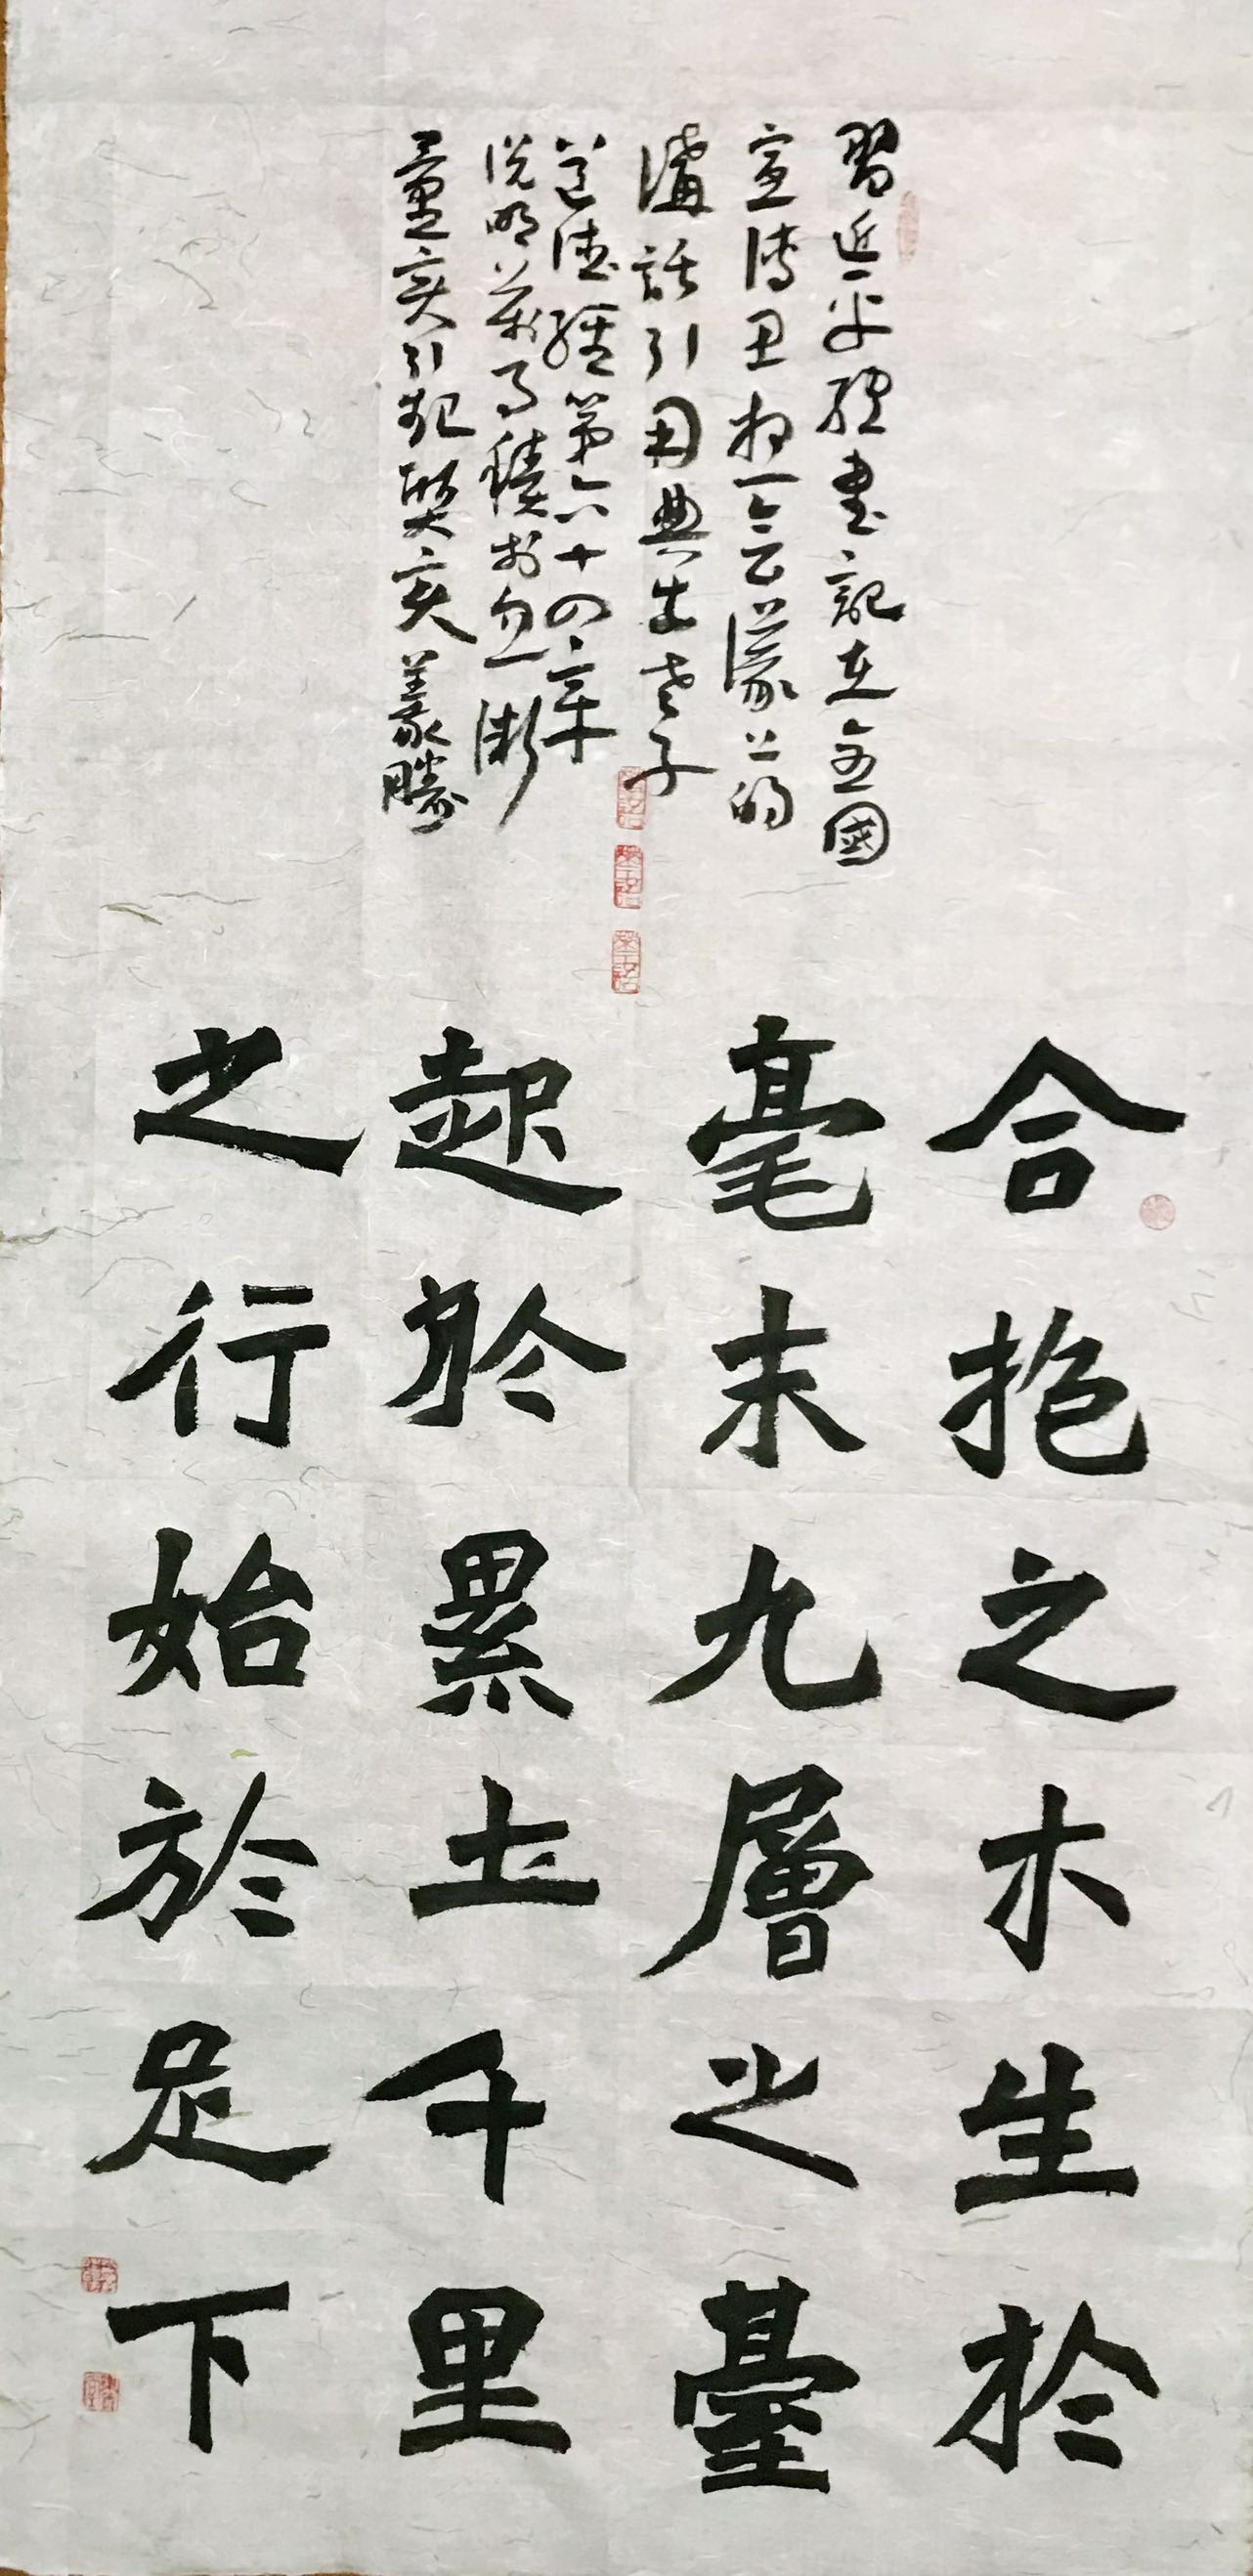 習近平總書記在全國
宣傳思想会議上的
講話引用典出老子
道德經第六十四章
說明萬事積於
量變引起質變 義勝
合抱之木生於
毫末九層之臺
起於累土千里
之行始於足下